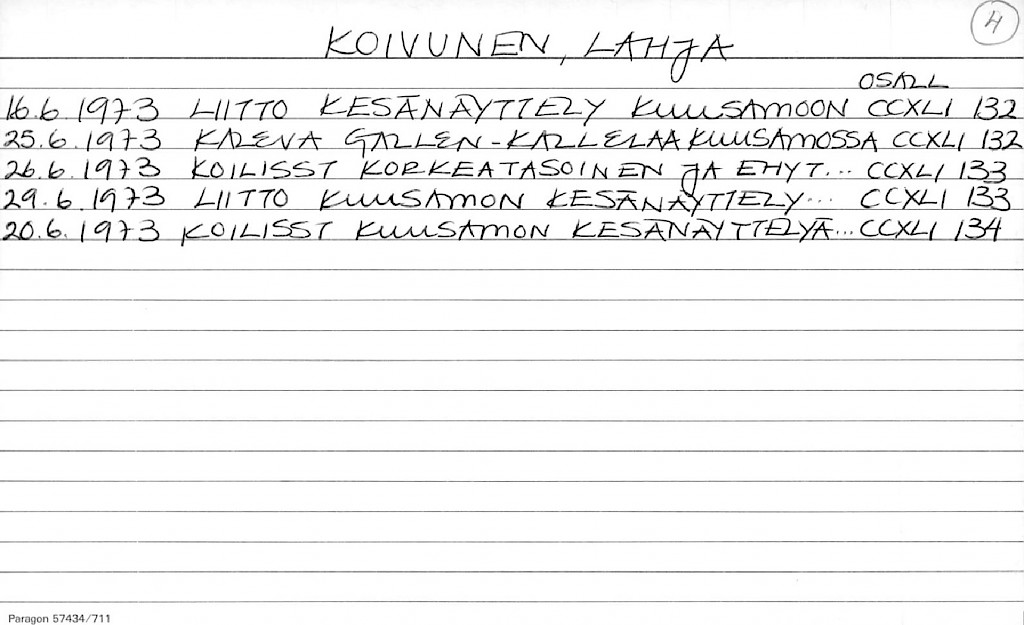 4
KOIVUNEN, LAHJA
OSALL
16.6.1973 LIITTO KESÄNÄYTTELY KUUSAMOON CCXLI 132
25.6.1973 KALEVA GALLEN-KALLELAA KUUSAMOSSA CCXLI 132
26.6.1973 KOILISST KORKEATASOINEN JA EHYT... CCXLI 133
29.6.1973 LIITTO KUUSAMON KESÄNÄYTTELY... CCXLI 133
20.6.1973 KOILISST KUUSAMON KESÄNÄYTTELYÄ... CCXLI 134
Paragon 57434/711